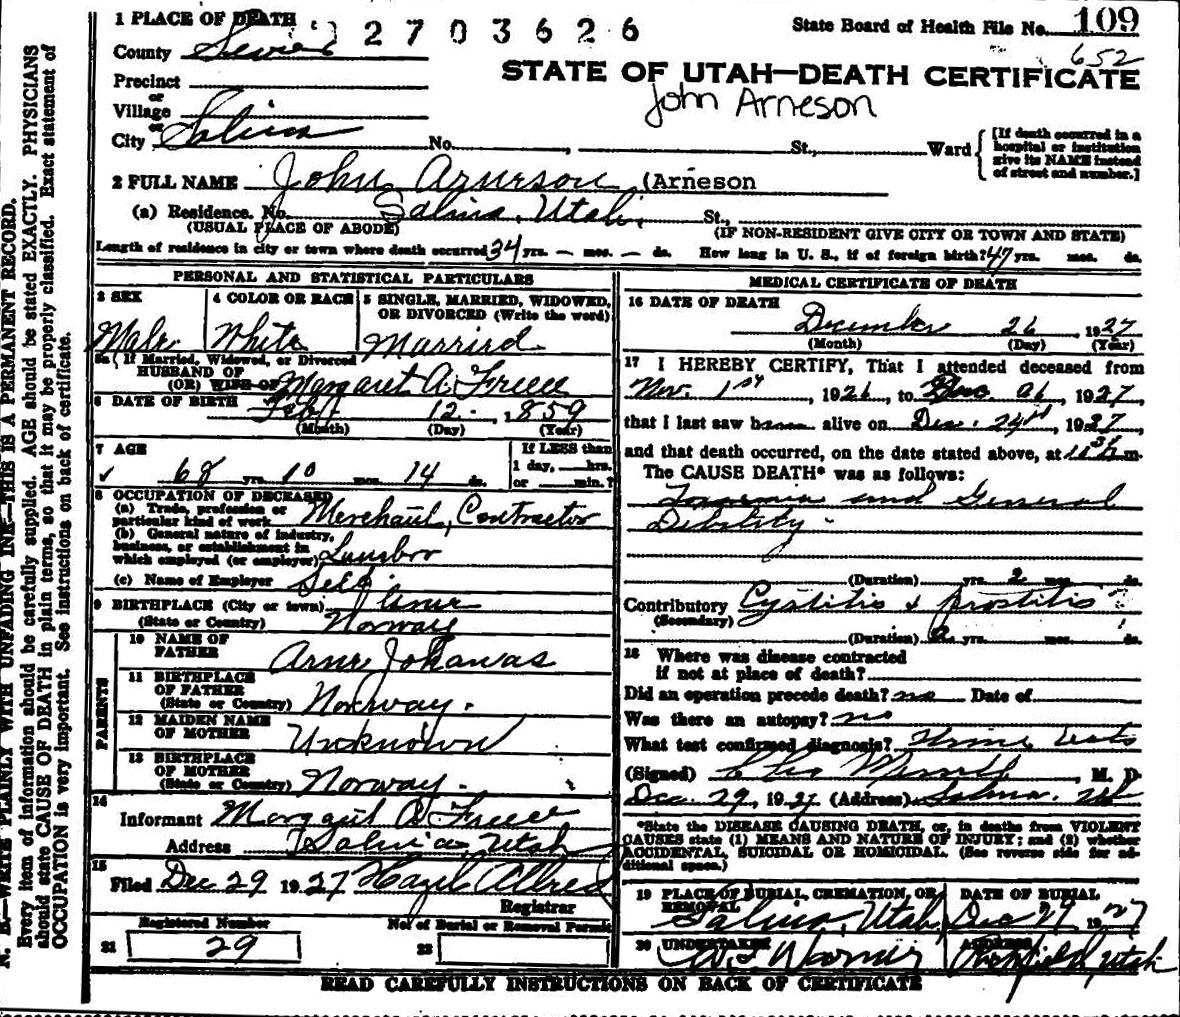 1 PLACE OF DEATH
2703626
State Board of Health File No. 109
County Sevier
652
STATE OF UTAH—DEATH CERTIFICATE
Precinct
or
Village
John Arneson
or
City Salina No. , St., Ward
[If death occurred in a
hospital or institution
give its NAME instead
of street and number.]
2 FULL NAME John Arneson (Arneson
(a) Residence. No. Salina, Utah. St.,
(USUAL PLACE OF ABODE) (IF NON-RESIDENT GIVE CITY OR TOWN AND STATE)
Length of residence in city or town where death occurred 34 yrs. — mos. — ds. How long in U. S., if of foreign birth? 47 yrs. mos. ds.
PERSONAL AND STATISTICAL PARTICULARS
3 SEX
Male
4 COLOR OR RACE
White
5 SINGLE, MARRIED, WIDOWED,
OR DIVORCED (Write the word)
Married
5a If Married, Widowed, or Divorced
HUSBAND OF
(OR) WIFE OF Margaret A. Freece
6 DATE OF BIRTH Feb 12 - 1859
(Month) (Day) (Year)
7 AGE
68 yrs. 10 mos. 14 ds.
If LESS than
1 day, hrs.
or min.?
8 OCCUPATION OF DECEASED
(a) Trade, profession or
particular kind of work Merchant, Contractor
(b) General nature of industry,
business, or establishment in
which employed (or employer) Lumber
(c) Name of Employer Self
9 BIRTHPLACE (City or town)
(State or Country) Norway
PARENTS
10 NAME OF
FATHER Arne Johanas
11 BIRTHPLACE
OF FATHER
(State or Country) Norway.
12 MAIDEN NAME
OF MOTHER Unknown
13 BIRTHPLACE
OF MOTHER
(State or Country) Norway.
14
Informant Margaret A Freece
Address Salina, Utah
15
Filed Dec 29 1927 Hazel Allred
Registrar
Registered Number
21 29
No. of Burial or Removal Permit
22
MEDICAL CERTIFICATE OF DEATH
16 DATE OF DEATH
December 26, 1927
(Month) (Day) (Year)
17 I HEREBY CERTIFY, That I attended deceased from
Nov. 1st, 1926, to Dec 26 1927
that I last saw h alive on Dec. 24th, 1927,
and that death occurred, on the date stated above, at m.
The CAUSE DEATH* was as follows:
and General
Debility.
(Duration) yrs. 2 mos. ds.
Contributory Cystitis & prostitis
(Secondary)
(Duration) 2 yrs. mos. ds.
18 Where was disease contracted
if not at place of death?
Did an operation precede death? no Date of
Was there an autopsy? no
What test confirmed diagnosis? Urine tests
(Signed) Merrill, M. D.
Dec. 29, 1927 (Address) Salina. Utah
*State the DISEASE CAUSING DEATH, or, in deaths from VIOLENT
CAUSES state (1) MEANS AND NATURE OF INJURY; and (2) whether
ACCIDENTAL, SUICIDAL OR HOMICIDAL. (See reverse side for ad-
ditional space.)
19 PLACE OF BURIAL, CREMATION, OR
REMOVAL
Salina, Utah
DATE OF BURIAL
Dec 29 1927
20 UNDERTAKER
Warner
ADDRESS
Richfield, Utah
READ CAREFULLY INSTRUCTIONS ON BACK OF CERTIFICATE
N. B.—WRITE PLAINLY WITH UNFADING INK—THIS IS A PERMANENT RECORD.
Every item of information should be carefully supplied. AGE should be stated EXACTLY. PHYSICIANS
should state CAUSE OF DEATH in plain terms, so that it may be properly classified. Exact statement of
OCCUPATION is very important. See instructions on back of certificate.